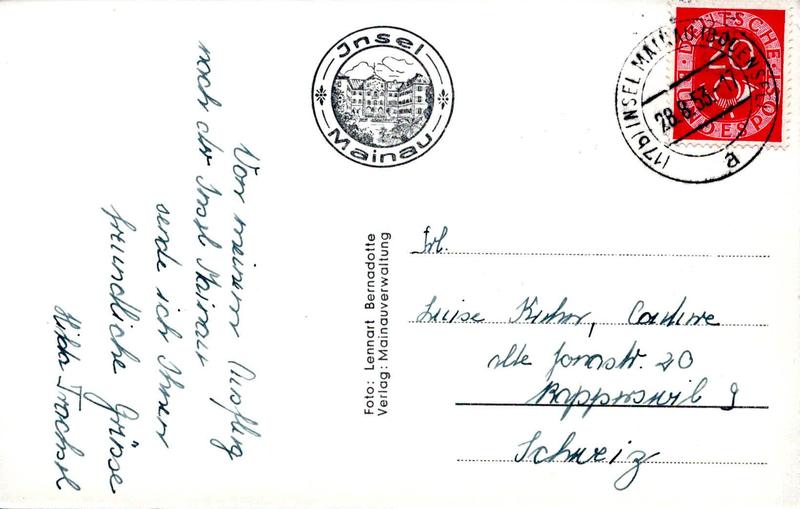 Von meinem Ausflug
nach der Insel Mainau
sende ich Ihnen
freundliche Grüsse
Hilda Trachsel
Insel
Mainau
Foto: Lennart Bernadotte
Verlag: Mainauverwaltung
(17b) INSEL MAINAU (BODENSEE)
28.8.53-17
a
DEUTSCHE
BUNDESPOST
20
Frl.
Luise Kuhn,
alte Jonastr. 20
Rapperswil
Schweiz